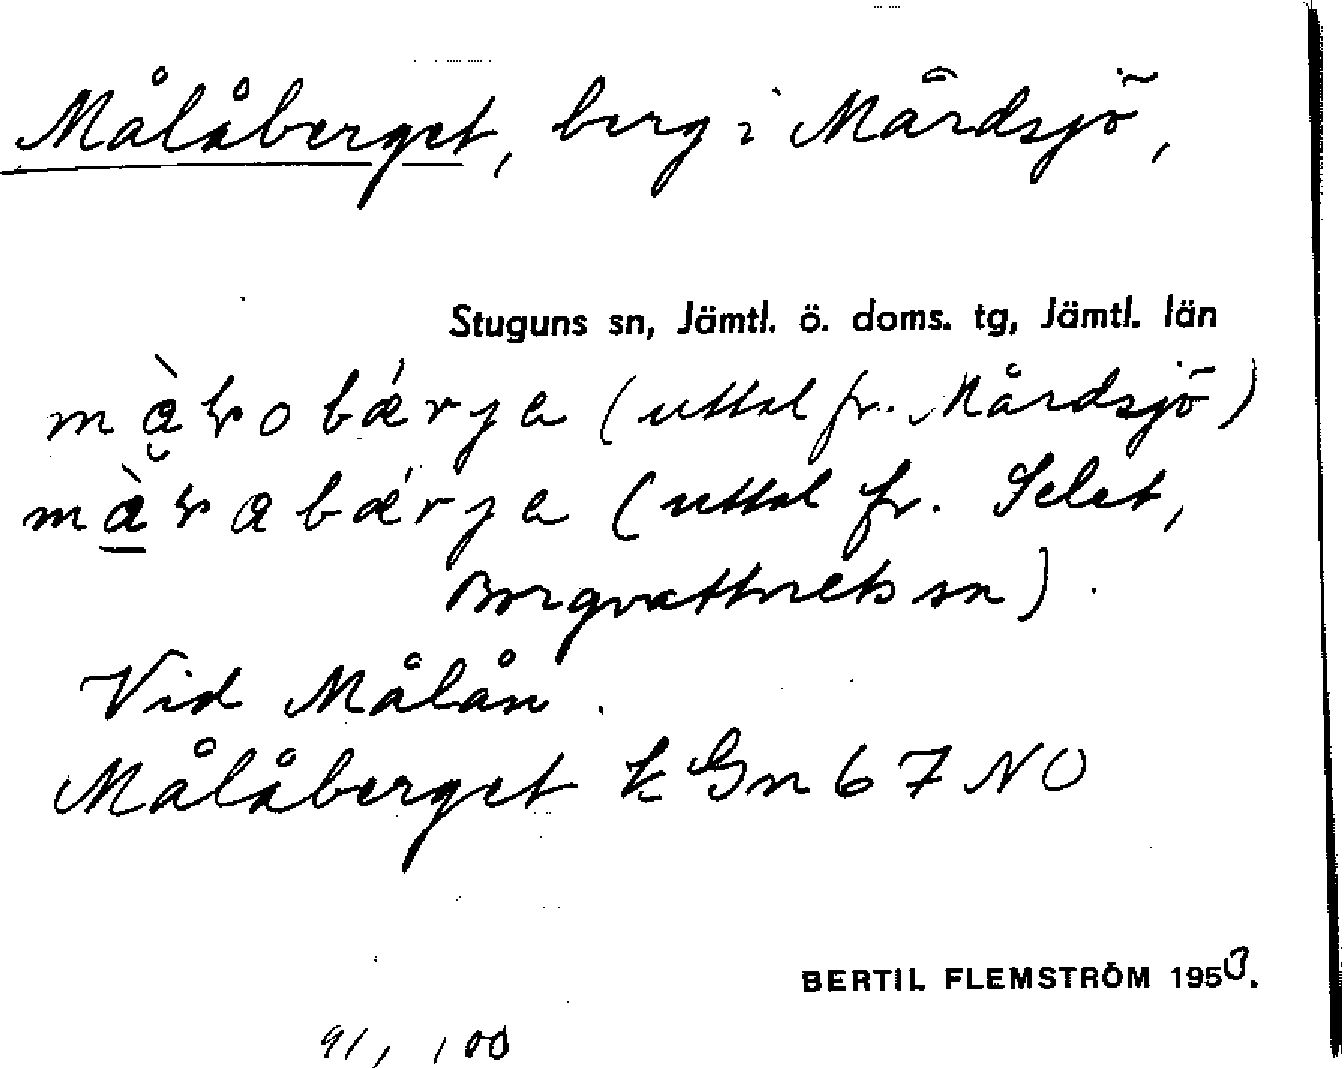 Målåberget, berg i Mårdsjö,
Stuguns sn, Jämtl. ö. doms. tg, Jämtl. län
(uttal fr. Mårdsjö)
(uttal fr. Selet,
Borgvattnets sn).
Vid Målån.
Målåberget k Gn 67 NO
BERTIL FLEMSTRÖM 195
91, 100